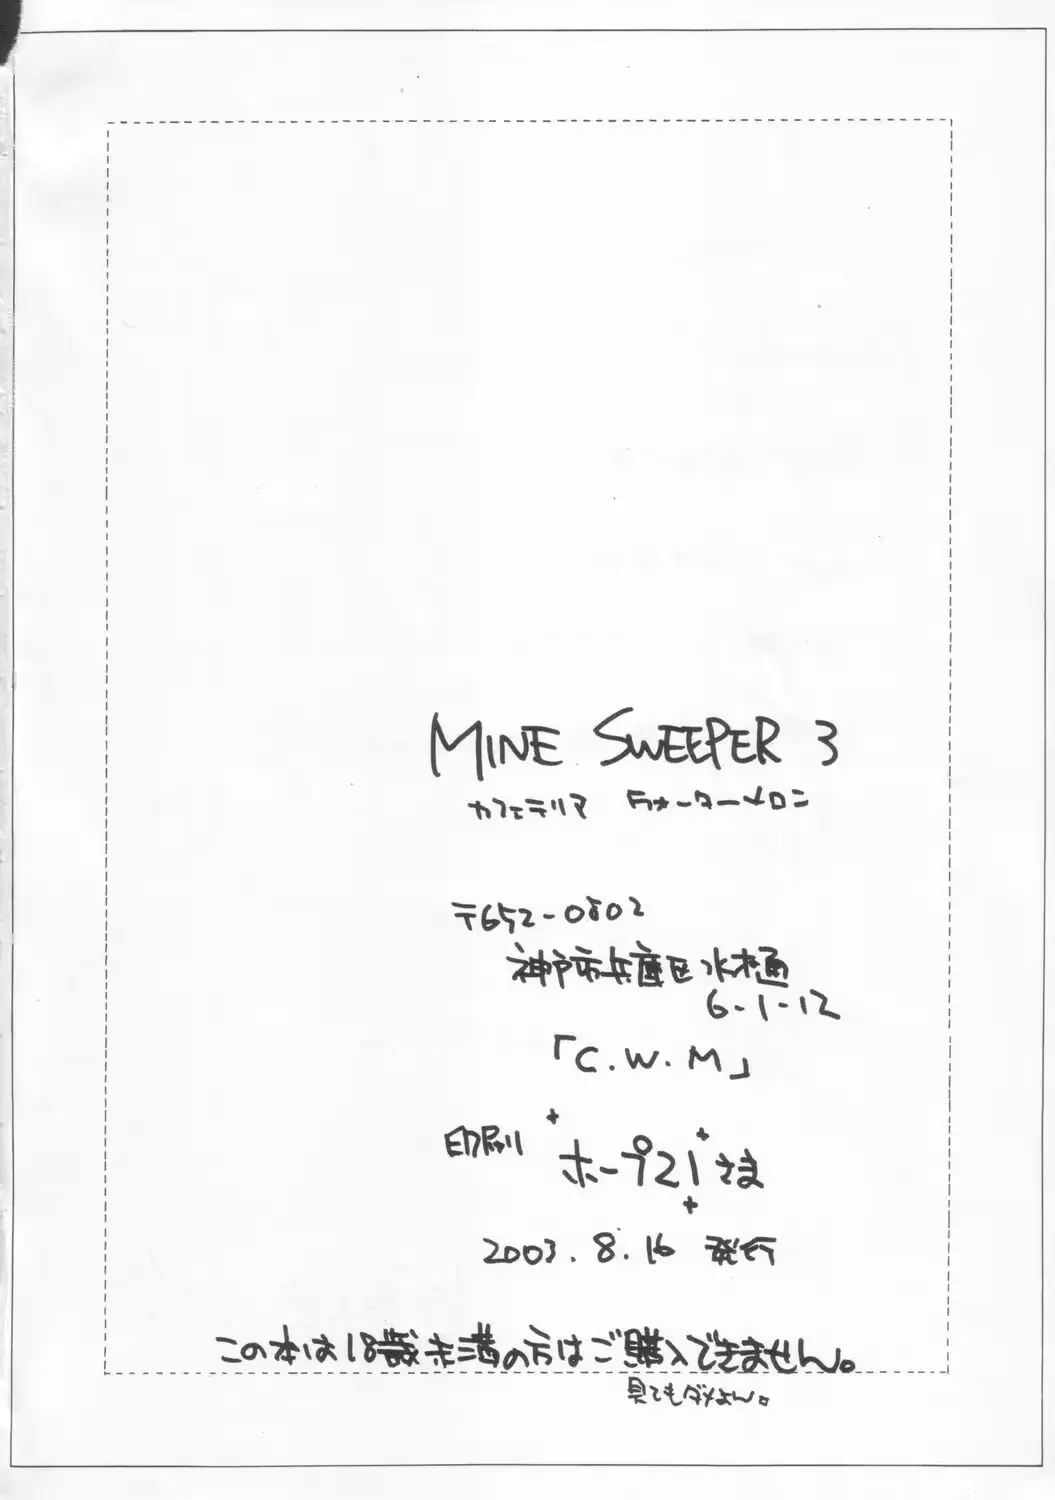 MINE SWEEPER 3
カフェテリア ウォーターメロン
〒652-0802
神戸市兵庫区水木通
6-1-12
「C.W.M」
印刷 ホープ21さま
2003.8.16 発行
この本は18歳未満の方はご購入できません。
見てもダメよん。